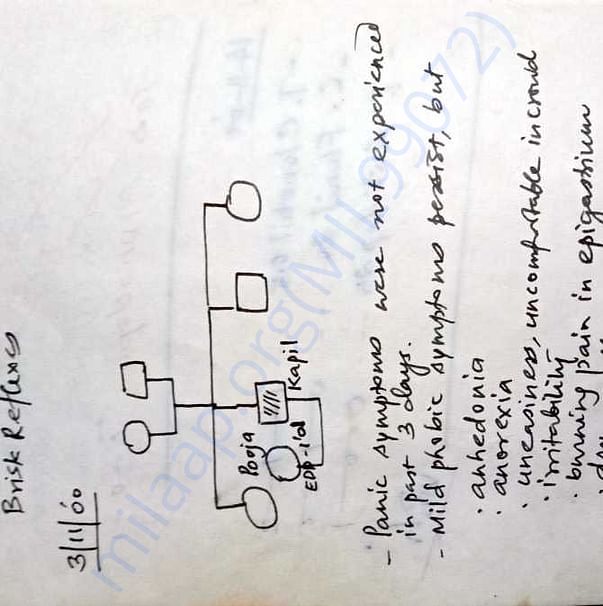 Brisk Reflexes
3/11/00
Pooja
Kapil
- Panic symptoms were not experienced
in past 3 days.
- Mild phobic symptoms persist, but
· anhedonia
· anorexia
· uneasiness, uncomfortable in crowd
· irritability
· burning pain in epigastrium
milaap.org(MIL99072)